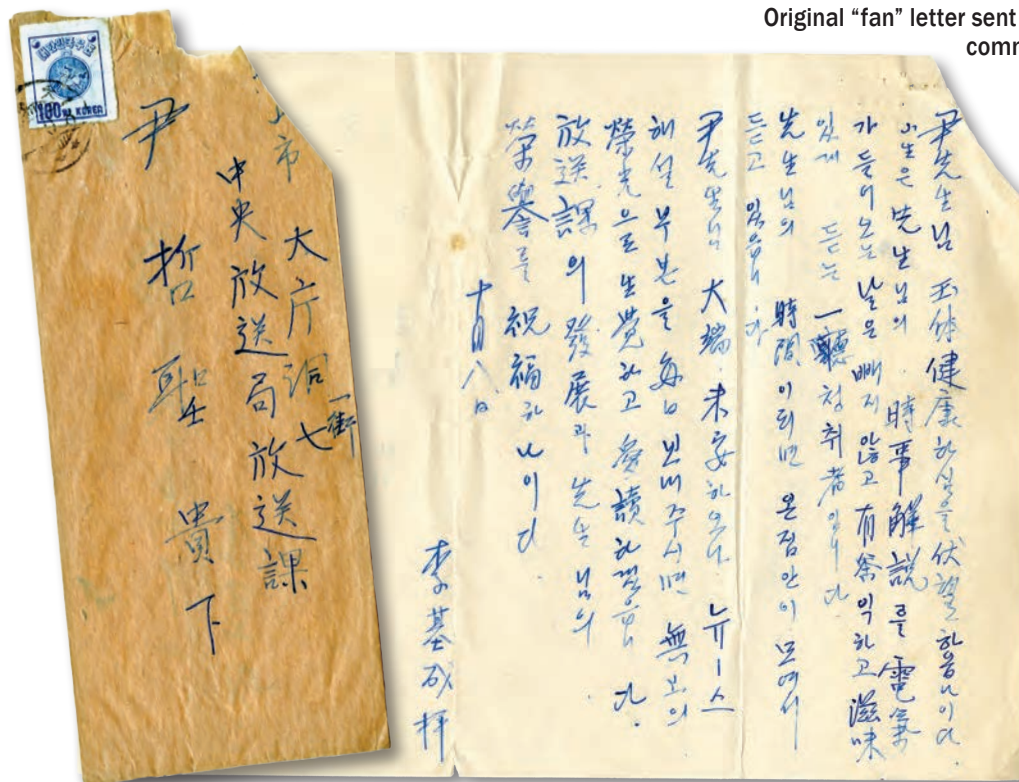 Original “fan” letter sent
comm
100 KOREA
市
大庁洞七
一街
中央放送局放送課
尹
哲聖貴下
尹先生님 玉体健康하심을 伏望하옵나이다.
小生은 先生님의 時事解説를 電氣
가 들어오는 날은 빼지 않고 有益하고 滋味
있게 듣는 一聽청취者입니다
先生님의 時間이되면 온집안이 모여서
듣고 있읍니다
尹先生님 大端 未安하오나 뉴ー스
해설 부분을 每日 보내주시면 無上의
榮光으로 生覺하고 愛讀하겠읍니다.
放送課의 發展과 先生님의
榮譽를 祝福하나이다
十月八日
李基成 拝